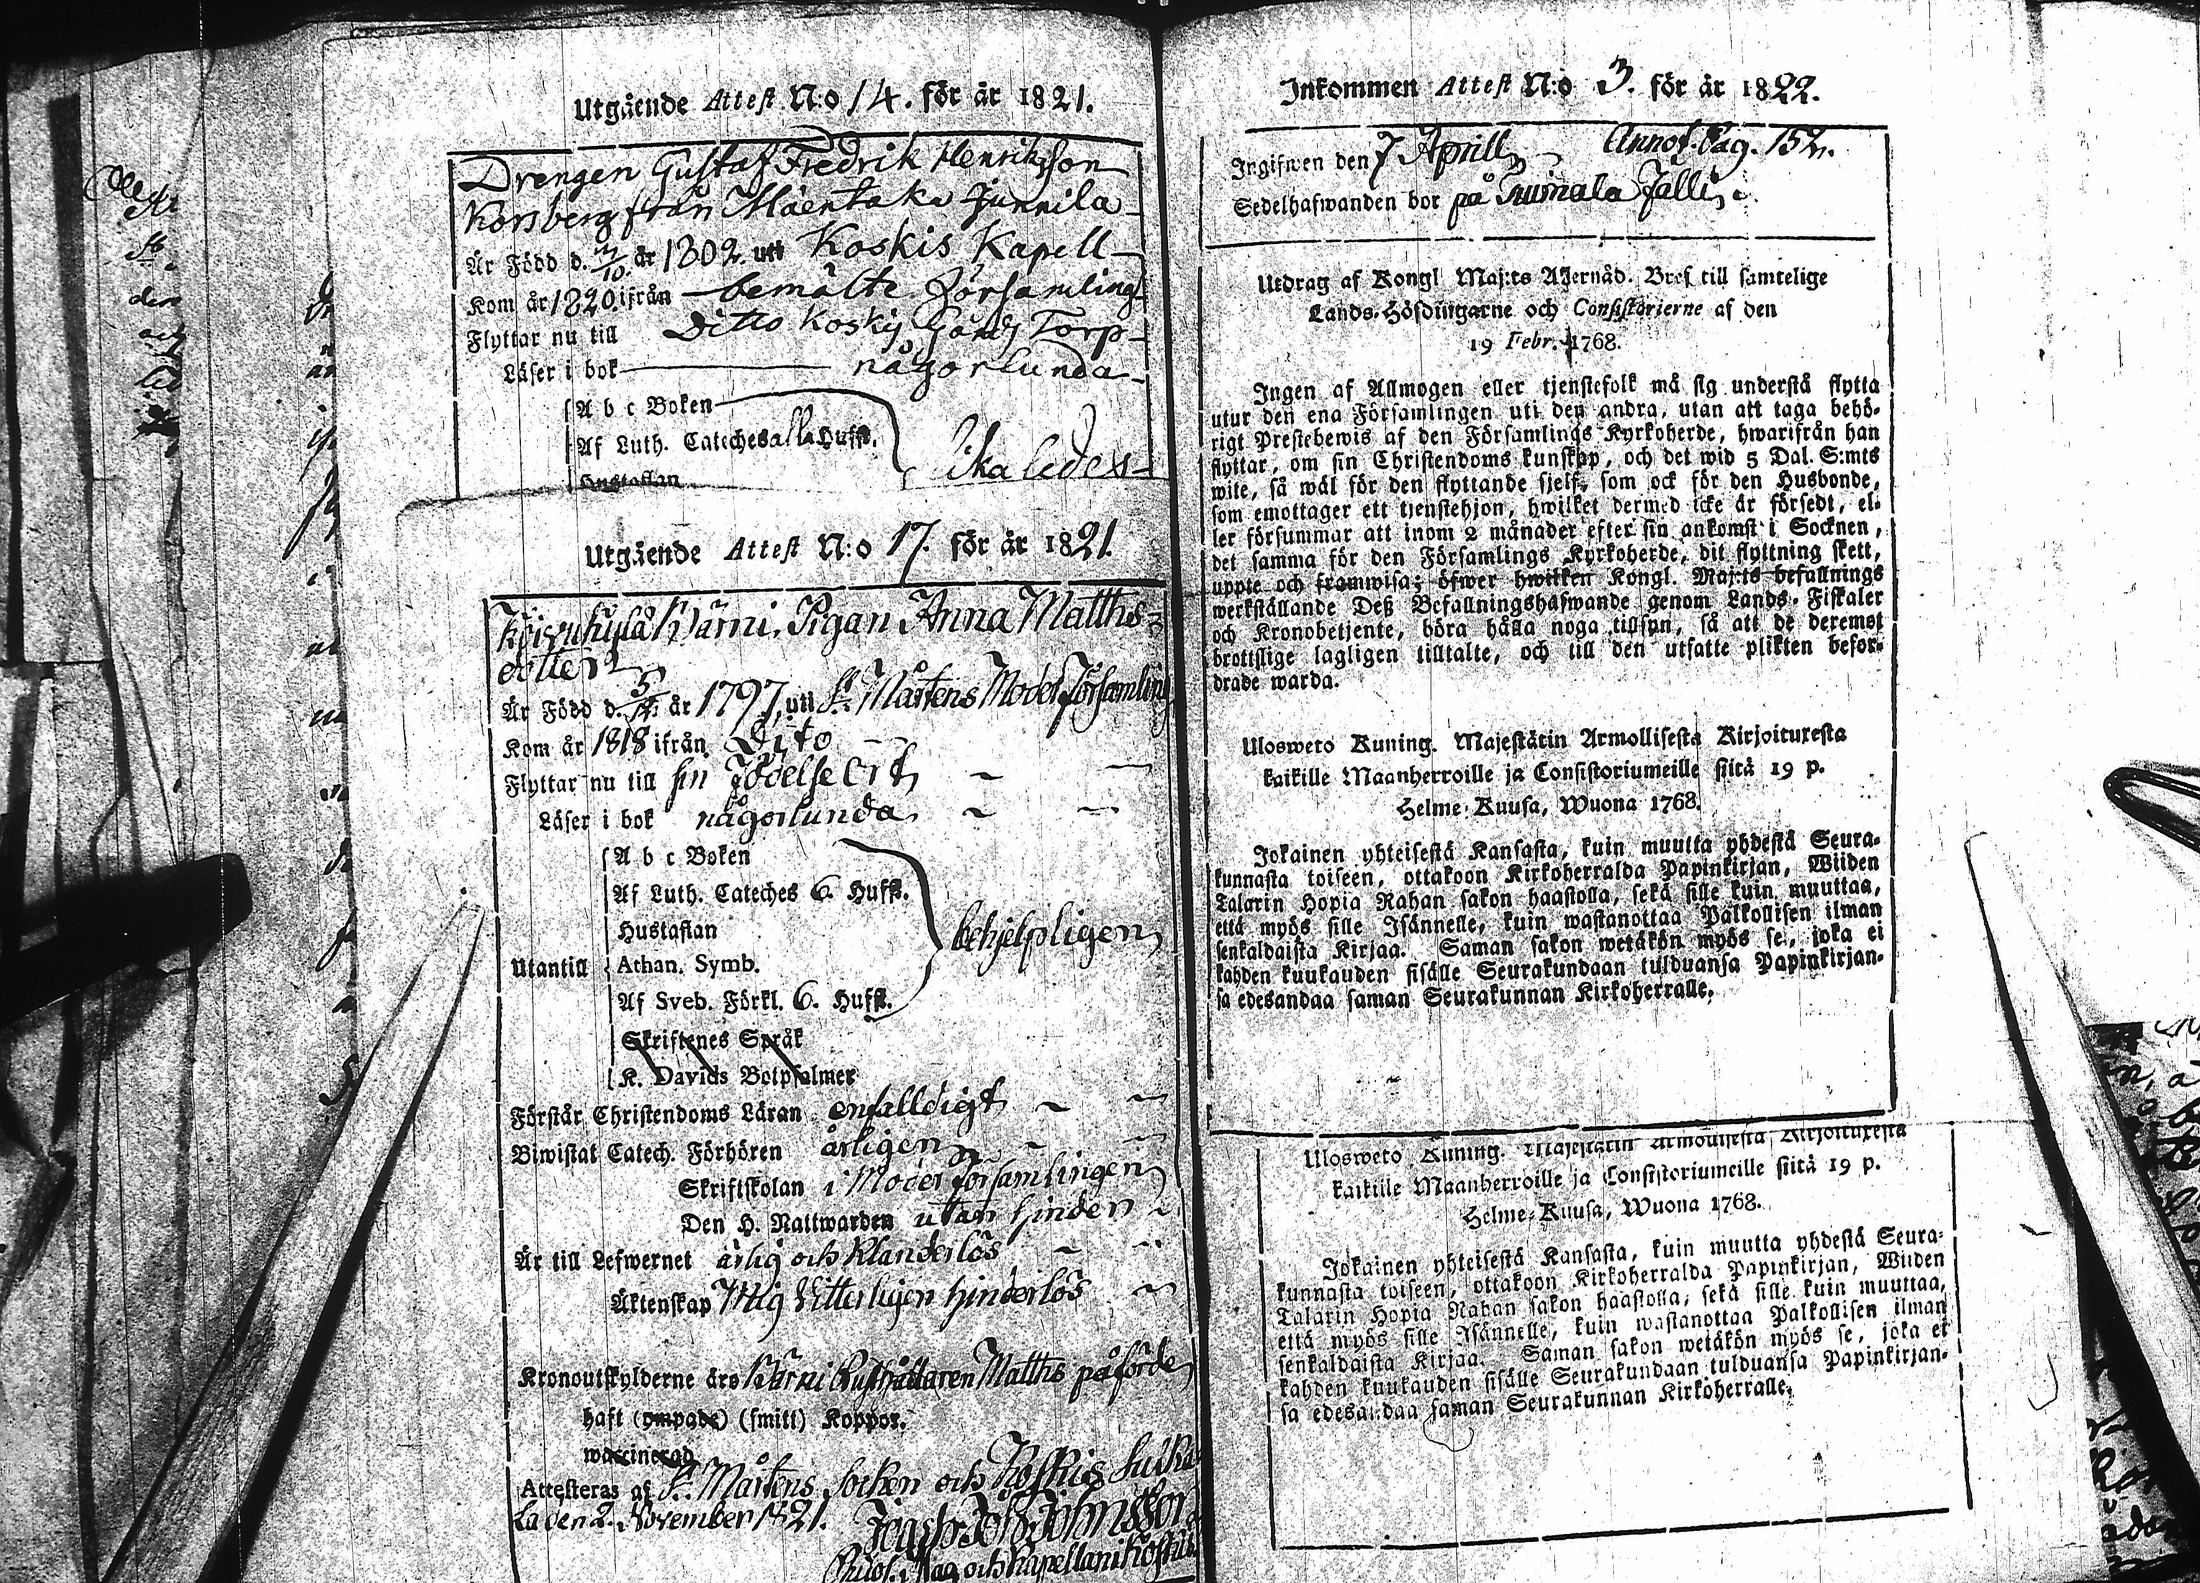 Utgående Attest N:o 14. för år 1821.
Drengen Gustaf Fredrik Henriksson
Korsberg från Mäentaka Junnila
Är Född d. /10. år 1802. utt Koskis Kapell
Kom år 1820. ifrån bemälte Församling
Flyttar nu till Ditto Koskis Gårds Torp
Läser i bok någorlunda
A b c Boken
Af Luth. Cateches alla Hufst.
Hustaflan
lika ledes
Utgående Attest N:o 17. för år 1821.
Härni. Pigan Anna Matths-
dotter
Är Född d. 5/12. år 1797, uti St. Mårtens Moder Församling
Kom år 1818 ifrån Dito
Flyttar nu till sin Födelse Ort
Läser i bok någorlunda
A b c Boken
Af Luth. Cateches 6. Hufst.
Hustaflan
behjelpligen
Utantill Athan. Symb.
Af Sveb. Förkl. 6. Hufst.
Skriftenes Språk
K. Davids Botpsalmer
Förstår Christendoms Läran enfalldigt
Biwistat Catech. Förhören årligen
Skriftskolan i Moder församlingen
Den H. Nattwarden utan hinder
Är till Lefwernet ärlig och klanderlös
Äktenskap Mig Vitterligen hinderlös
Kronoutskylderne äro Härni Rusthållaren Matths påförde
haft (ympade) (smitt) Koppor.
waccinerad
Attesteras af St. Mårtens Socken och Koskis
la den 2. November 1821.
och Kapellan i Koskis
Inkommen Attest N:o 3. för år 1822.
Ingifwen den 7 Aprill Annot. Pag. 152.
Sedelhafwanden bor på
Utdrag af Kongl Maj:ts Allernåd. Bref till samtelige
Lands-Höfdingarne och Consistorierne af den
19 Febr. 1768.
Ingen af Allmogen eller tjenstefolk må sig understå flytta
utur den ena Församlingen uti den andra, utan att taga behö-
rigt Prestebewis af den Församlings Kyrkoherde, hwarifrån han
flyttar, om sin Christendoms kunskap, och det wid 5 Dal. S:mts
wite, så wäl för den flyttande sjelf, som ock för den Husbonde,
som emottager ett tjenstehjon, hwilket dermed icke är försedt, el-
ler försummar att inom 2 månader efter sin ankomst i Socknen,
det samma för den Församlings Kyrkoherde, dit flyttning skett,
uppte och framwisa; öfwer hwilken Kongl. Maj:ts befallnings
werkställande Deß Befallningshafwande genom Lands-Fiskaler
och Kronobetjente, böra hålla noga tillsyn, så att de deremot
brottslige lagligen tilltalte, och till den utsatte plikten befor-
drade warda.
Ulosweto Kuning. Majestätin Armollisesta Kirjoituxesta
kaikille Maanherroille ja Consistoriumeille siitä 19 p.
Helme-Kuusa, Wuona 1768.
Jokainen yhteisestä Kansasta, kuin muutta yhdestä Seura-
kunnasta toiseen, ottakoon Kirkoherralda Papinkirjan, Wiiden
Talarin Hopia Rahan sakon haastolla, sekä sille kuin muuttaa,
että myös sille Isännelle, kuin wastanottaa Palkollisen ilman
senkaldaista Kirjaa. Saman sakon wetäkön myös se, joka ei
kahden kuukauden sisälle Seurakundaan tulduansa Papinkirjan-
sa edesandaa saman Seurakunnan Kirkoherralle.
Ulosweto Kuning. Majestätin Armollisesta Kirjoituxesta
kaikille Maanherroille ja Consistoriumeille siitä 19 p.
Helme-Kuusa, Wuona 1768.
Jokainen yhteisestä Kansasta, kuin muutta yhdestä Seura-
kunnasta toiseen, ottakoon Kirkoherralda Papinkirjan, Wiiden
Talarin Hopia Rahan sakon haastolla, sekä sille kuin muuttaa,
että myös sille Isännelle, kuin wastanottaa Palkollisen ilman
senkaldaista Kirjaa. Saman sakon wetäkön myös se, joka ei
kahden kuukauden sisälle Seurakundaan tulduansa Papinkirjan-
sa edesandaa saman Seurakunnan Kirkoherralle.